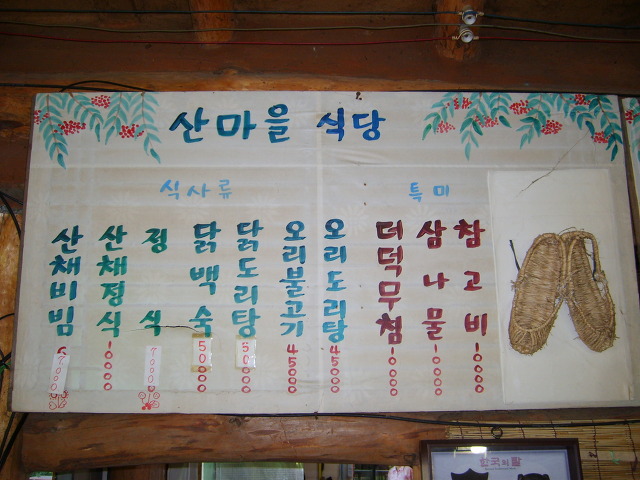 산마을 식당
식사류
특미
산채비빔 7000
산채정식 10000
정식 7000
닭백숙 50000
닭도리탕 50000
오리불고기 45000
오리도리탕 45000
더덕무침 10000
삼나물 10000
참고비 10000
한국의탈